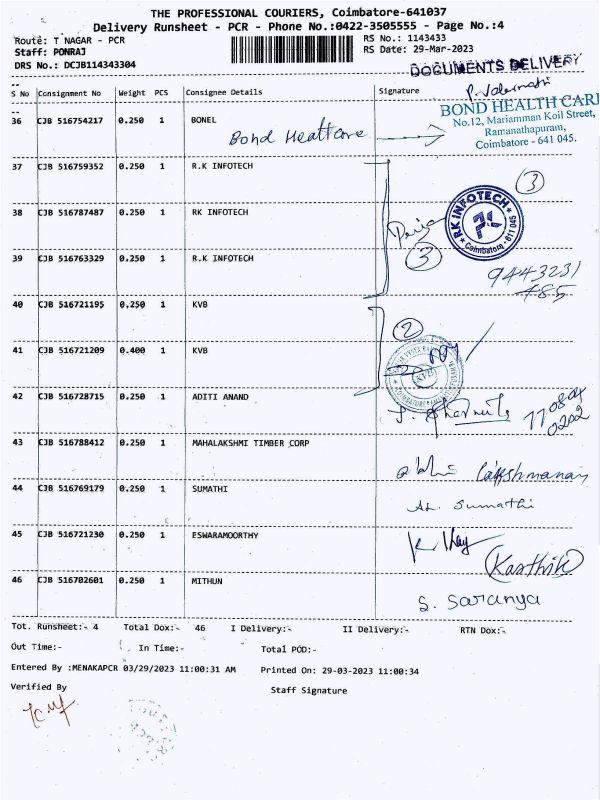 THE PROFESSIONAL COURIERS, Coimbatore-641037
Delivery Runsheet - PCR - Phone No.:0422-3505555 - Page No.:4
Route: T NAGAR - PCR
RS No.: 1143433
Staff: PONRAJ
RS Date: 29-Mar-2023
DRS No.: DCJB114343304
DOCUMENTS DELIVERY
S No Consignment No Weight PCS Consignee Details Signature
BOND HEALTH CARE
No.12, Mariamman Koil Street,
Ramanathapuram,
Coimbatore - 641 045.
36 CJB 516754217 0.250 1 BONEL
Bond Healtcare
37 CJB 516759352 1 0.250 R.K INFOTECH
3
RK INFOTECH
Coimbatore - 611 045
38 CJB 516787487 0.250 1 RK INFOTECH
Priya
3
39 CJB 516763329 0.250 1 R.K INFOTECH
9443231
485
40 CJB 516721195 0.250 1 KVB
2
41 CJB 516721209 0.400 1 KVB
KVB
42 CJB 516728715 0.250 1 ADITI ANAND
43 CJB 516788412 0.250 1 MAHALAKSHMI TIMBER CORP
44 CJB 516769179 0.250 1 SUMATHI
AL. Sumathi
45 CJB 516721230 0.250 1 ESWARAMOORTHY
Karthik
46 CJB 516702601 0.250 1 MITHUN
S. Saranya
Tot. Runsheet:- 4 Total Dox:- 46 I Delivery:- II Delivery:- RTN Dox:-
Out Time:- In Time:- Total POD:-
Entered By :MENAKAPCR 03/29/2023 11:00:31 AM Printed On: 29-03-2023 11:00:34
Verified By
Staff Signature